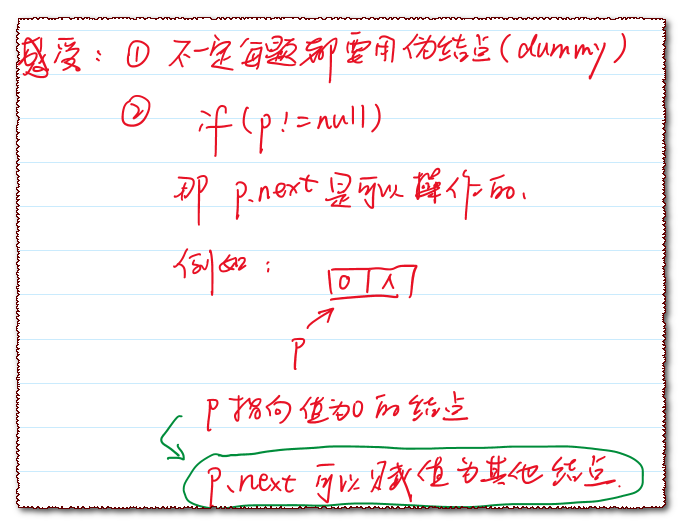 感受：① 不一定每题都要用伪结点(dummy)
② if(p!=null)
那 p.next是可以操作的.
例如：
0 ∧
p
p 指向值为0的结点
p.next 可以赋值为其他结点.